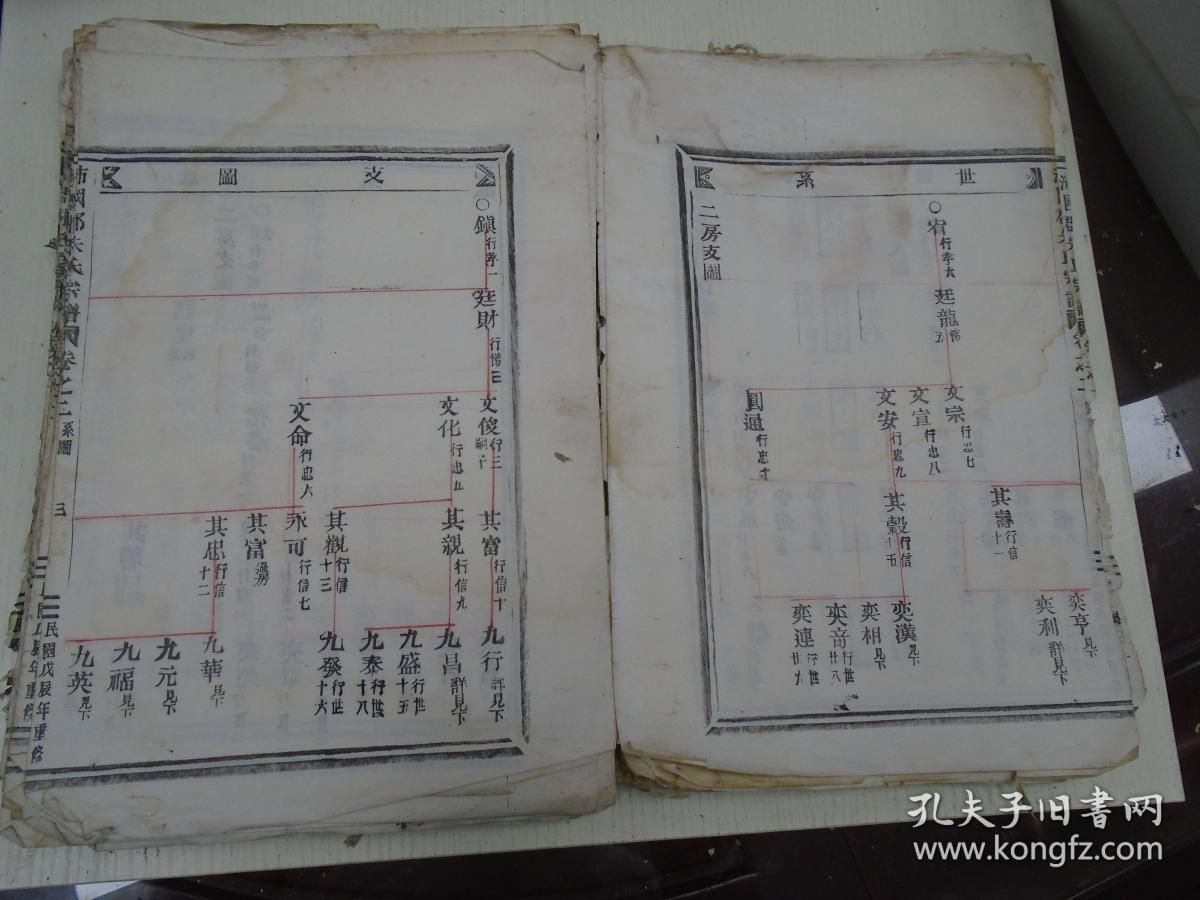 世系
○宥行孝六
廷龍悌五
文宗行忠七
文宣行忠八
文安行忠九
圓通行忠十
其壽行信十一
其穀行信十五
奕亨見下
奕利詳見下
奕漢見下
奕相見下
奕音行世廿八
奕連行世廿九
二房支圖
支圖
○鎮行孝一
廷財行悌三
文俊行三嗣子
文化行忠五
文命行忠六
其富行信十
其親行信九
其觀行信十三
永可行信七
其富過房
其忠行信十二
九行詳見下
九昌詳見下
九盛行世十五
九泰行世十八
九發行世十六
九華見下
九元見下
九福見下
九英見下
沛國郡朱氏宗譜
卷之二
系圖
三
民國戊辰年重修
孔夫子旧书网
www.kongfz.com